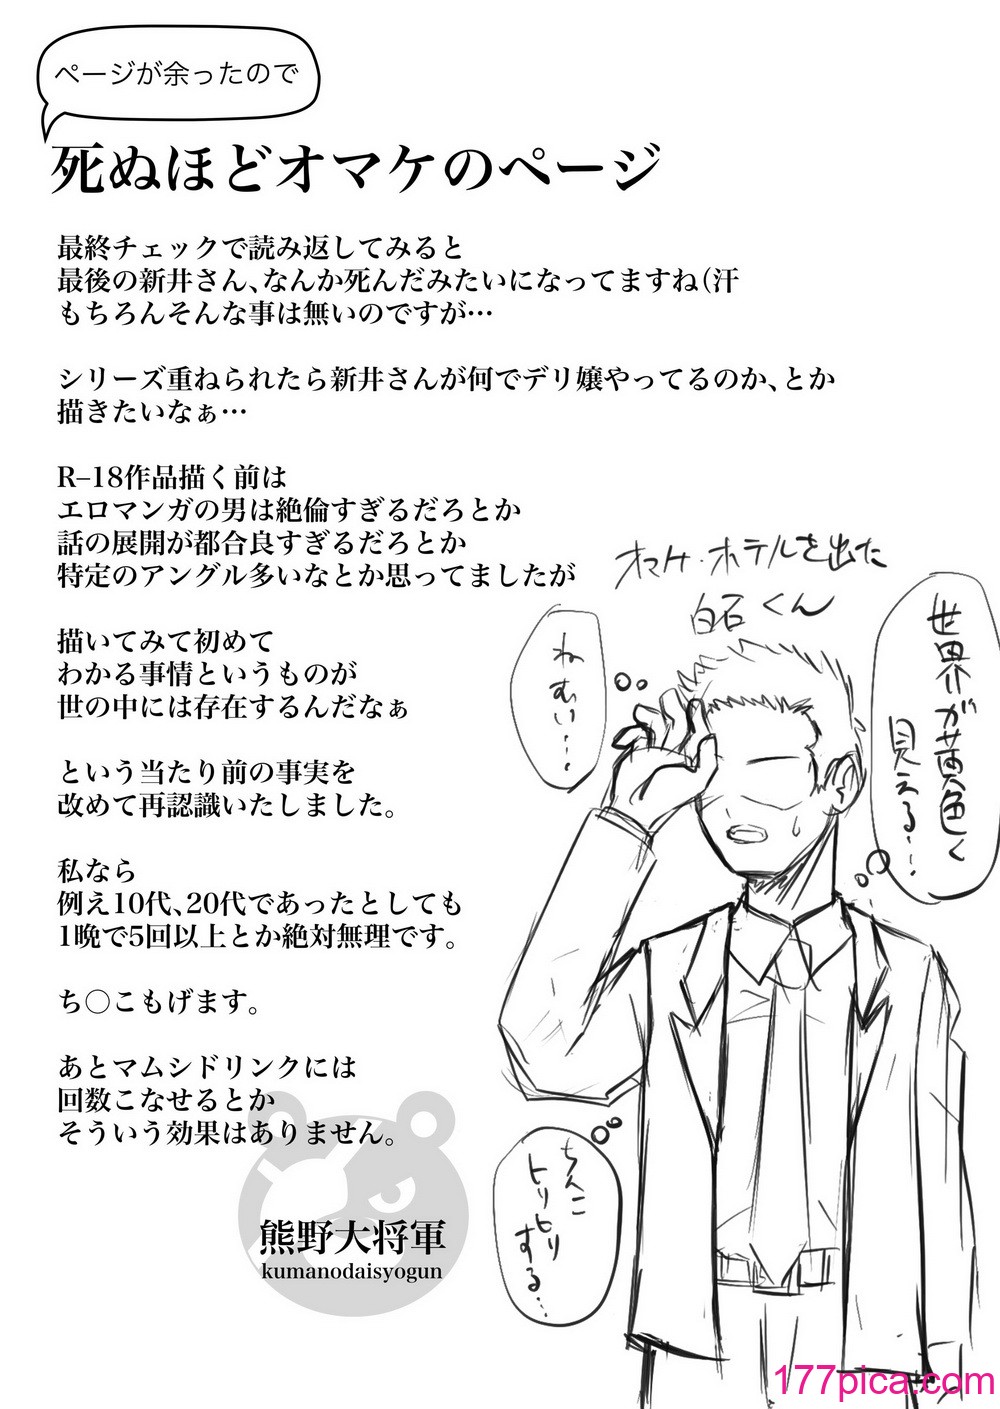 ページが余ったので
死ぬほどオマケのページ
最終チェックで読み返してみると
最後の新井さん、なんか死んだみたいになってますね(汗
もちろんそんな事は無いのですが…
シリーズ重ねられたら新井さんが何でデリ嬢やってるのか、とか
描きたいなぁ…
R–18作品描く前は
エロマンガの男は絶倫すぎるだろとか
話の展開が都合良すぎるだろとか
特定のアングル多いなとか思ってましたが
描いてみて初めて
わかる事情というものが
世の中には存在するんだなぁ
という当たり前の事実を
改めて再認識いたしました。
私なら
例え10代、20代であったとしても
1晩で5回以上とか絶対無理です。
ち○こもげます。
あとマムシドリンクには
回数こなせるとか
そういう効果はありません。
熊野大将軍
kumanodaisyogun
オマケ・ホテルを出た
白石くん
世界が黄色く
見える…
ねむい…
ちんこ
ヒリヒリ
する…
177pica.com